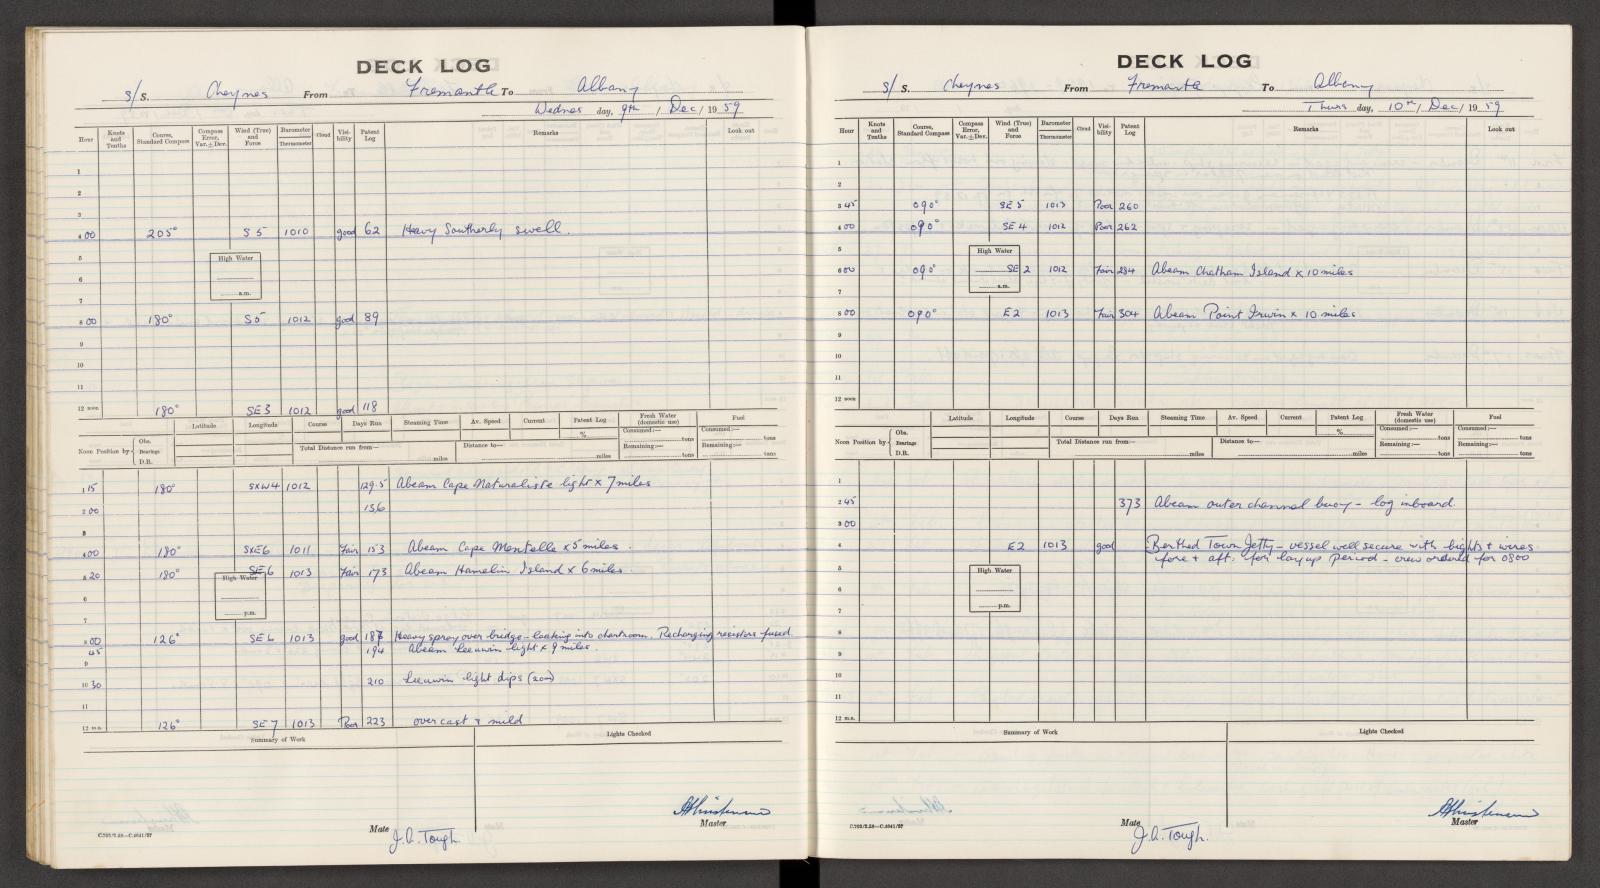 DECK LOG
S/S. Cheynes From Fremantle To Albany
Wednes day, 9th / Dec / 1959
Hour Knots and Tenths Course, Standard Compass Compass Error, Var. ± Dev. Wind (True) and Force Barometer Thermometer Cloud Visibility Patent Log Remarks Look out
1
2
3
4 00 205° S 5 1010 good 62 Heavy Southerly swell.
5
High Water
6
a.m.
7
8 00 180° S 5 1012 good 89
9
10
11
12 noon 180° SE 3 1012 good 118
Latitude Longitude Course Days Run Steaming Time Av. Speed Current Patent Log % Fresh Water (domestic use) Fuel
Consumed:— tons Consumed:— tons
Noon Position by Obs. Bearings D.R. Total Distance run from— miles Distance to— miles Remaining:— tons Remaining:— tons
1 15 180° SXW4 1012 129.5 Abeam Cape Naturaliste light x 7 miles
2 00 136
3
4 00 180° SXE6 1011 Fair 153 Abeam Cape Mentelle x 5 miles.
5 20 180° SE 6 1013 Fair 173 Abeam Hamelin Island x 6 miles.
High Water
6
p.m.
7
8 00 126° SE 6 1013 good 187 Heavy spray over bridge - leaking into chartroom. Recharging resistors fused.
45 194 Abeam Leeuwin light x 9 miles.
9
10 30 210 Leeuwin light dips (20m)
11
12 m.n. 126° SE 7 1013 Poor 223 overcast & mild
Summary of Work Lights Checked
Master
C.702/2.58—C.4041/57
Mate J.A. Tough.
DECK LOG
S/S. Cheynes From Fremantle To Albany
Thurs day, 10th / Dec / 1959
Hour Knots and Tenths Course, Standard Compass Compass Error, Var. ± Dev. Wind (True) and Force Barometer Thermometer Cloud Visibility Patent Log Remarks Look out
1
2
3 45 090° SE 5 1013 Poor 260
4 00 090° SE 4 1012 Poor 262
5
High Water
6 00 090° SE 2 1012 Fair 284 Abeam Chatham Island x 10 miles
a.m.
7
8 00 090° E 2 1013 Fair 304 Abeam Point Irwin x 10 miles
9
10
11
12 noon
Latitude Longitude Course Days Run Steaming Time Av. Speed Current Patent Log % Fresh Water (domestic use) Fuel
Consumed:— tons Consumed:— tons
Noon Position by Obs. Bearings D.R. Total Distance run from— miles Distance to— miles Remaining:— tons Remaining:— tons
1
2 45 373 Abeam outer channel buoy - log inboard.
3 00
4 E 2 1013 good Berthed Town Jetty - vessel well secure with bights & wires
fore & aft. for layup period - crew ordered for 0800
5
High Water
6
p.m.
7
8
9
10
11
12 m.n.
Summary of Work Lights Checked
Master
C.702/2.58—C.4041/57
Mate J.A. Tough.